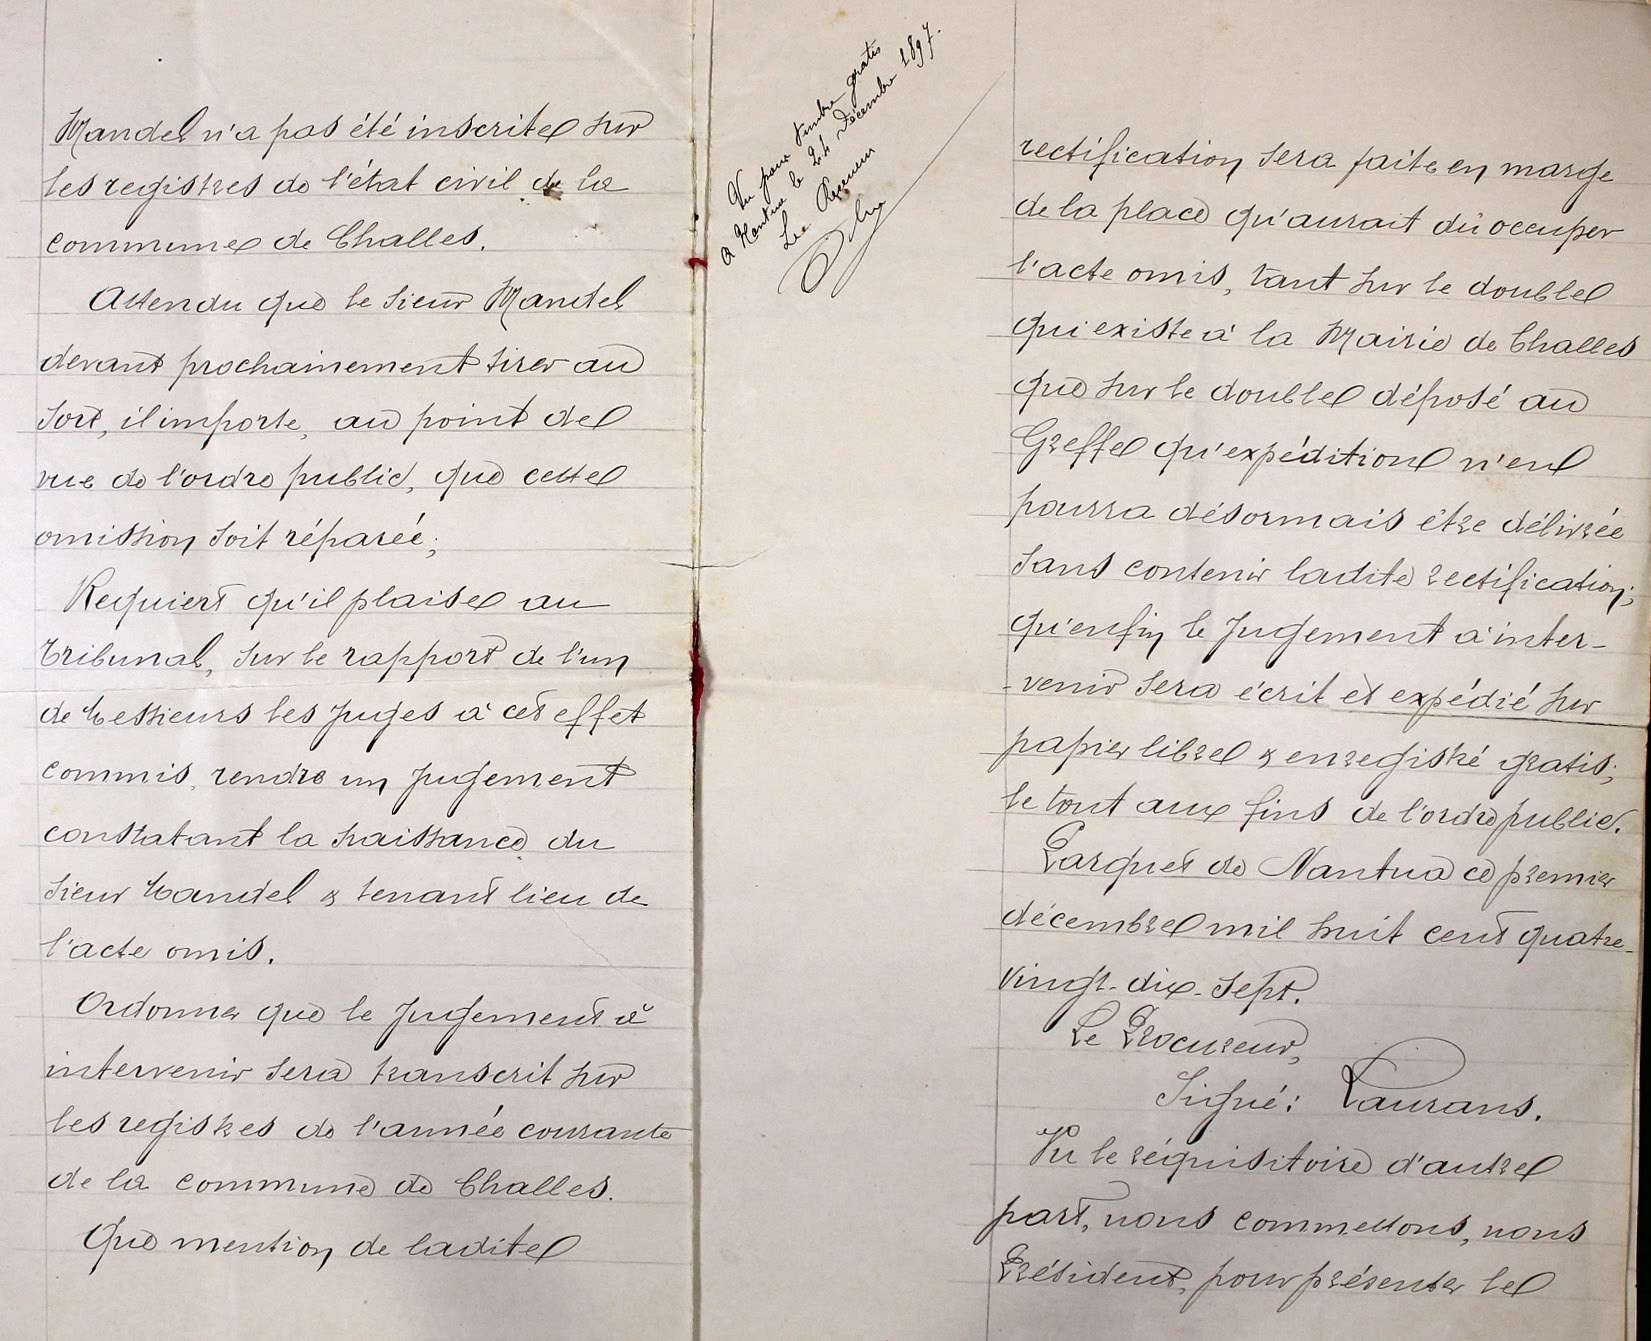 Mandel n'a pas été inscrite sur
les registres de l'état civil de la
commune de Challes.
Attendu que le sieur Mandel
devant prochainement tirer au
sort, il importe, au point de
vue de l'ordre public, que cette
omission soit réparée;
Requiert qu'il plaise au
Tribunal, sur le rapport de l'un
de Messieurs les Juges à cet effet
commis, rendre un Jugement
constatant la naissance du
sieur Mandel & tenant lieu de
l'acte omis.
Ordonner que le Jugement à
intervenir sera transcrit sur
les registres de l'année courante
de la commune de Challes.
Que mention de ladite
Vu pour timbre gratis
à Nantua le 24 Décembre 1897.
Le Receveur
rectification sera faite en marge
de la place qu'aurait dû occuper
l'acte omis, tant sur le double
qui existe à la Mairie de Challes
que sur le double déposé au
Greffe qu'expédition n'en
pourra désormais être délivrée
sans contenir ladite rectification;
qu'enfin le Jugement à inter-
-venir sera écrit et expédié sur
papier libre & enregistré gratis;
le tout aux fins de l'ordre public.
Parquet de Nantua ce premier
décembre mil huit cent quatre-
vingt-dix-sept.
Le Procureur,
Signé: Laurans.
Vu le réquisitoire d'autre
part, nous commettons, nous
Président, pour présenter le